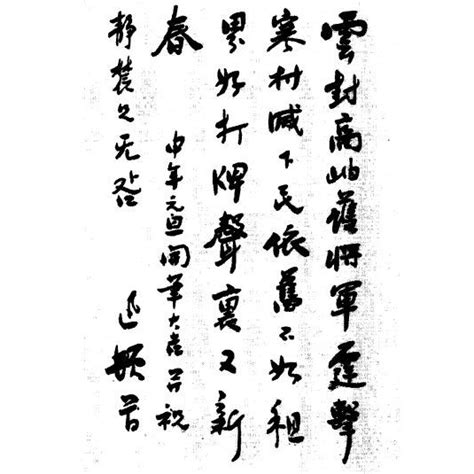 雲封高岫護將軍霆擊
寒村滅下民依舊不如租
界好打牌聲裏又新
春 申年元旦開筆大吉并祝
靜農兄无咎 迅 頓首